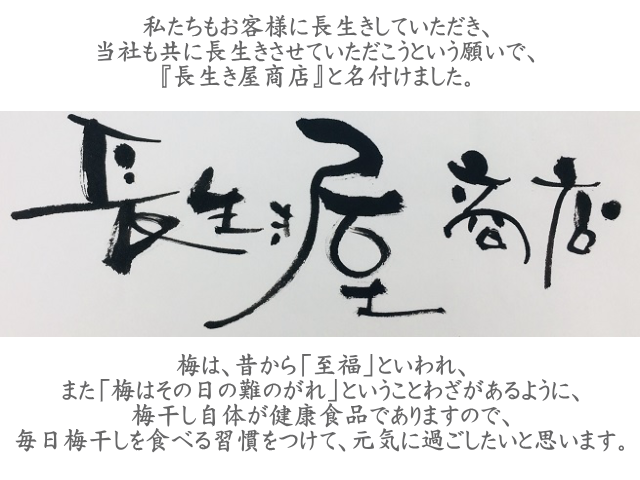 私たちもお客様に長生きしていただき、
当社も共に長生きさせていただこうという願いで、
『長生き屋商店』と名付けました。
長生き屋 商店
梅は、昔から「至福」といわれ、
また「梅はその日の難のがれ」ということわざがあるように、
梅干し自体が健康食品でありますので、
毎日梅干しを食べる習慣をつけて、元気に過ごしたいと思います。